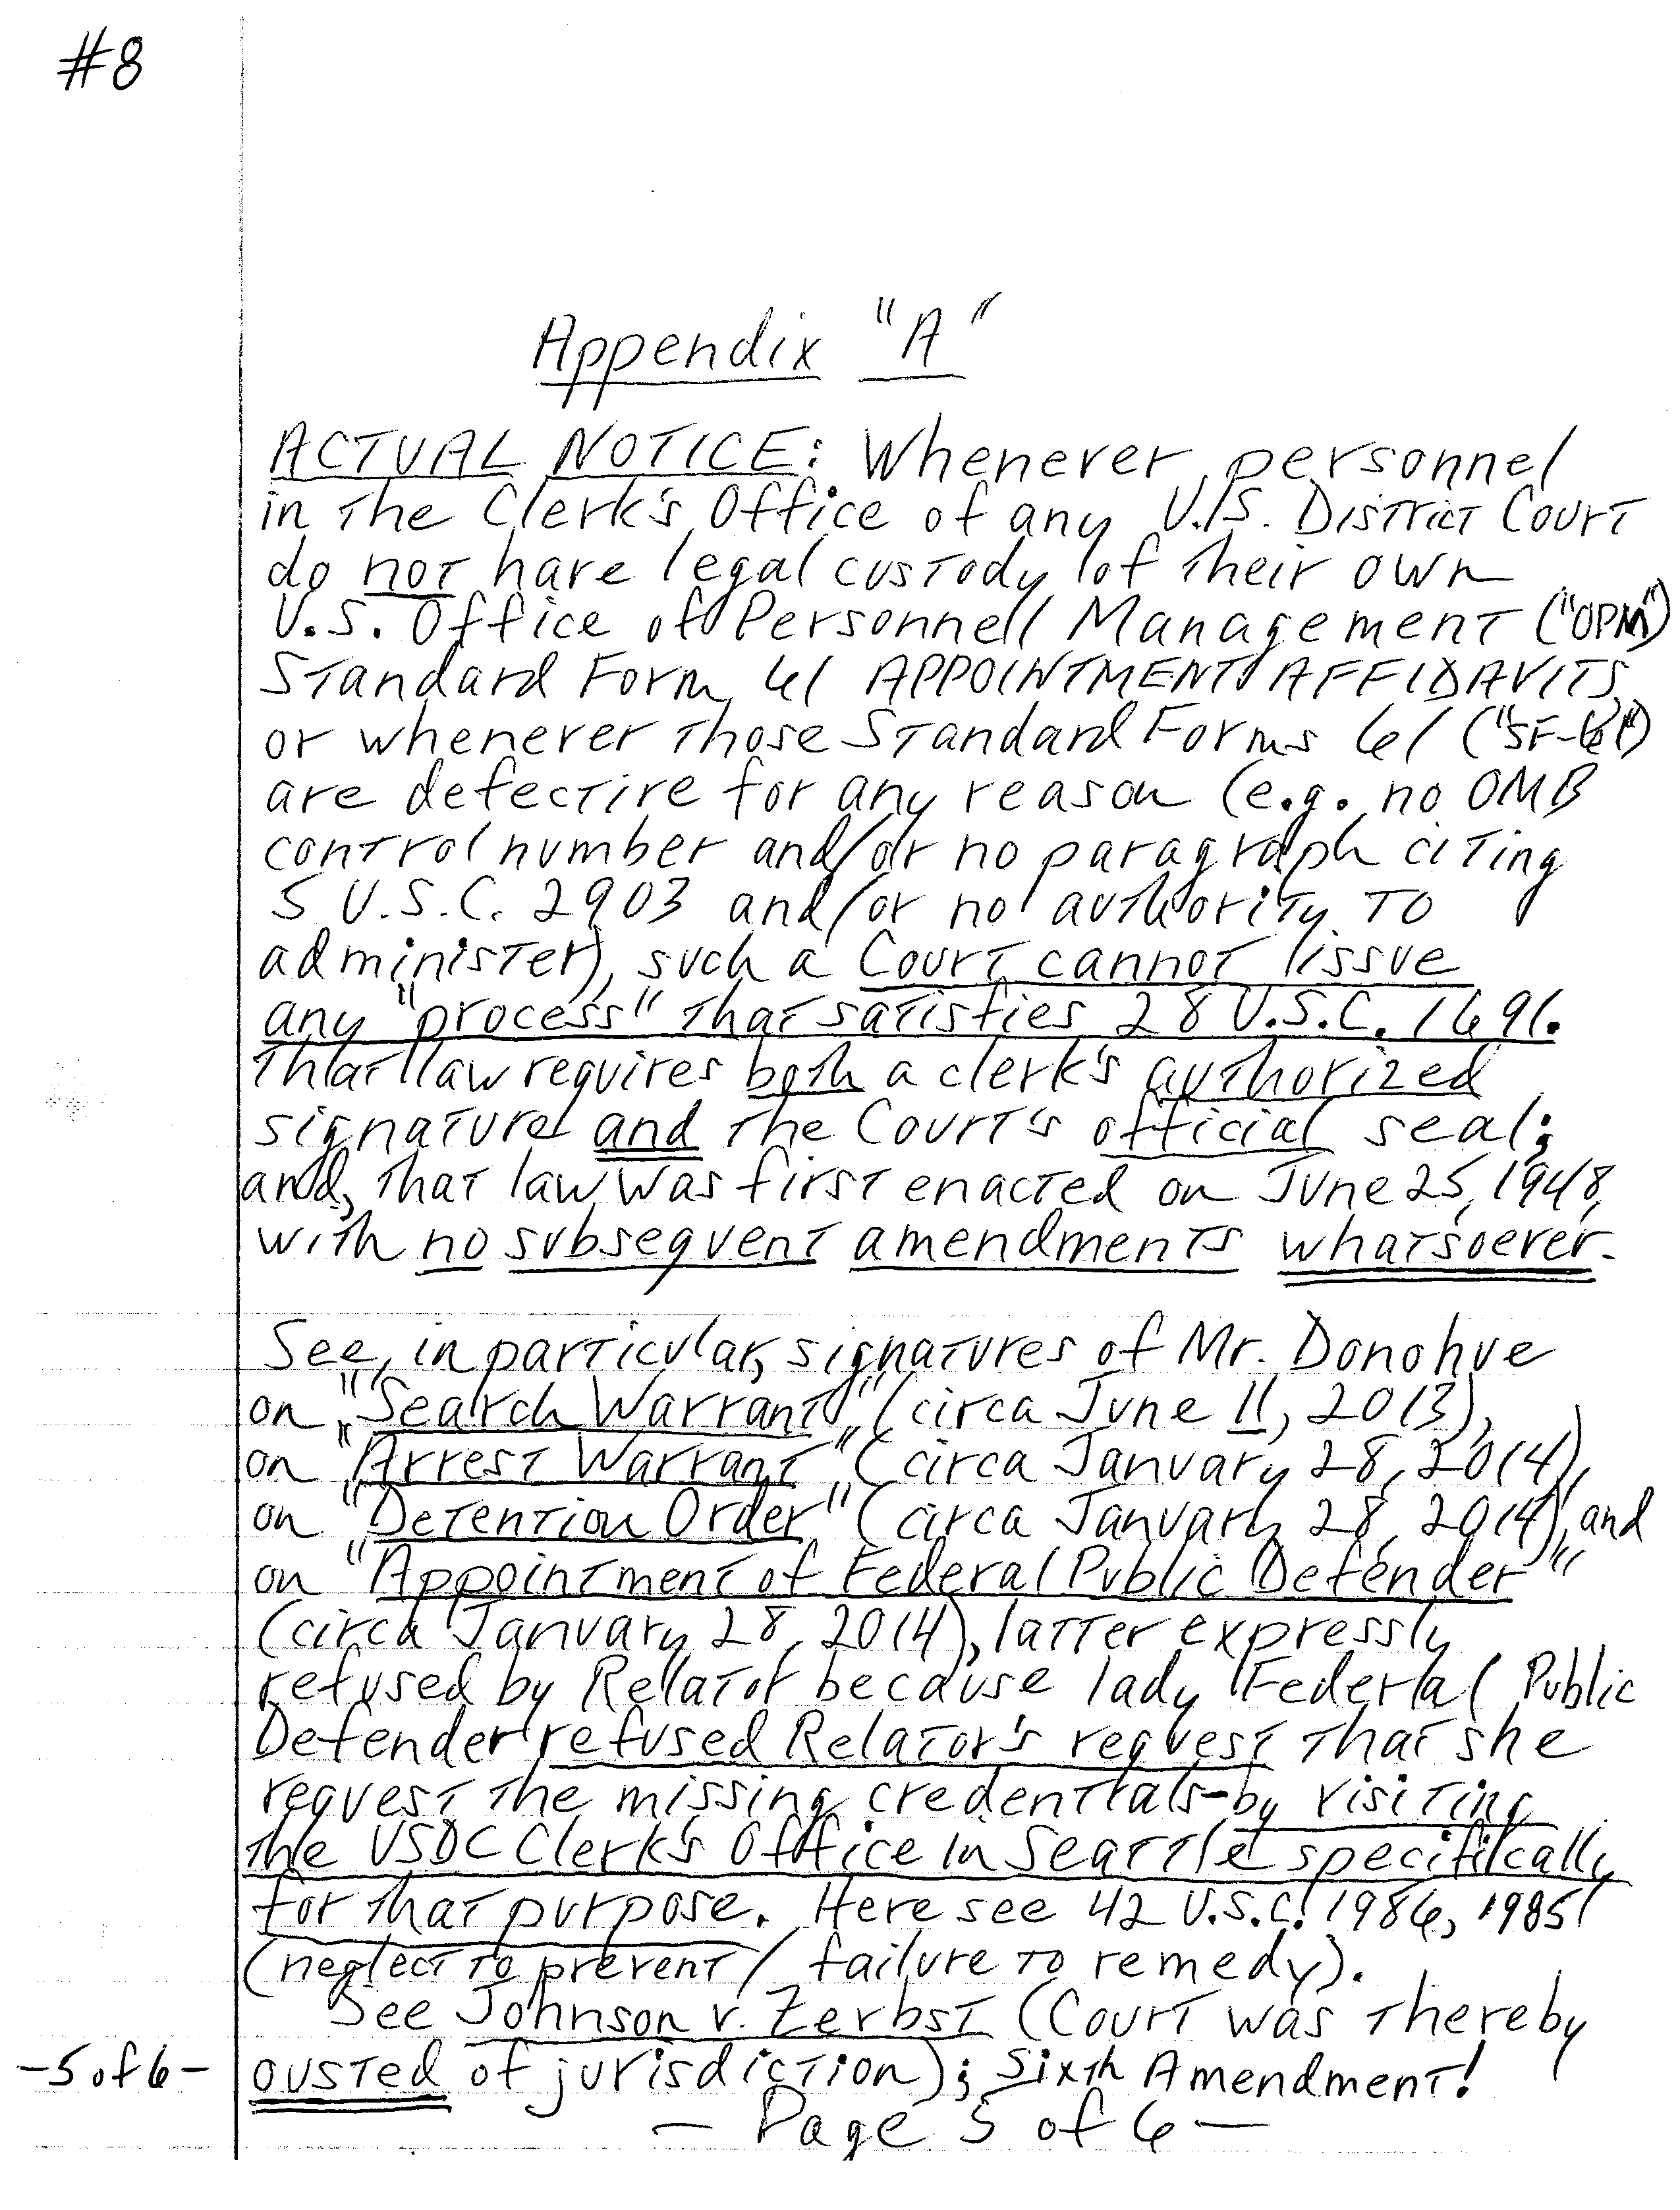 #8
Appendix "A"
ACTUAL NOTICE: Whenever personnel
in the Clerk's Office of any U.S. District Court
do not have legal custody of their own
U.S. Office of Personnell Management ("OPM")
Standard Form 61 APPOINTMENT AFFIDAVITS,
or whenever those Standard Forms 61 ("SF-61")
are defective for any reason (e.g. no OMB
control number and/or no paragraph citing
5 U.S.C. 2903 and/or no authority to
administer), such a Court cannot issue
any "process" that satisfies 28 U.S.C. 1691.
That law requires both a clerk's authorized
signature and the Court's official seal;
and, that law was first enacted on June 25, 1948,
with no subsequent amendments whatsoever.
See, in particular, signatures of Mr. Donohue
on "Search Warrant" (circa June 11, 2013),
on "Arrest Warrant" (circa January 28, 2014),
on "Detention Order" (circa January 28, 2014), and
on "Appointment of Federal Public Defender"
(circa January 28, 2014), latter expressly
refused by Relator because lady Federal Public
Defender refused Relator's request that she
request the missing credentials - by visiting
the USDC Clerk's Office in Seattle specifically
for that purpose. Here see 42 U.S.C. 1986, 1985
(neglect to prevent / failure to remedy).
See Johnson v. Zerbst (Court was thereby
-5 of 6- ousted of jurisdiction); Sixth Amendment!
- Page 5 of 6 -